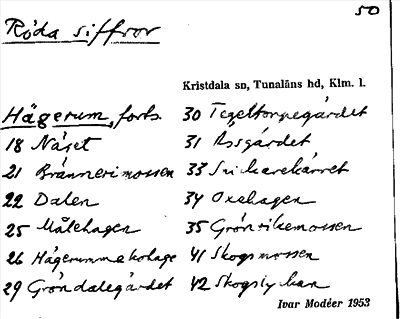 50
Röda siffror
Kristdala sn, Tunaläns hd, Klm. l.
Hägerum, forts.
18 Näset
21 Brännerimossen
22 Dalen
25 Målehagen
26 Hägerummekohage
29 Gröndalegärdet
30 Tegeltorpegärdet
31 Assgärdet
33 Snickarekärret
34 Oxehagen
35 Grönsikemossen
41 Skogsmossen
42 Skogslyckan
Ivar Modéer 1953